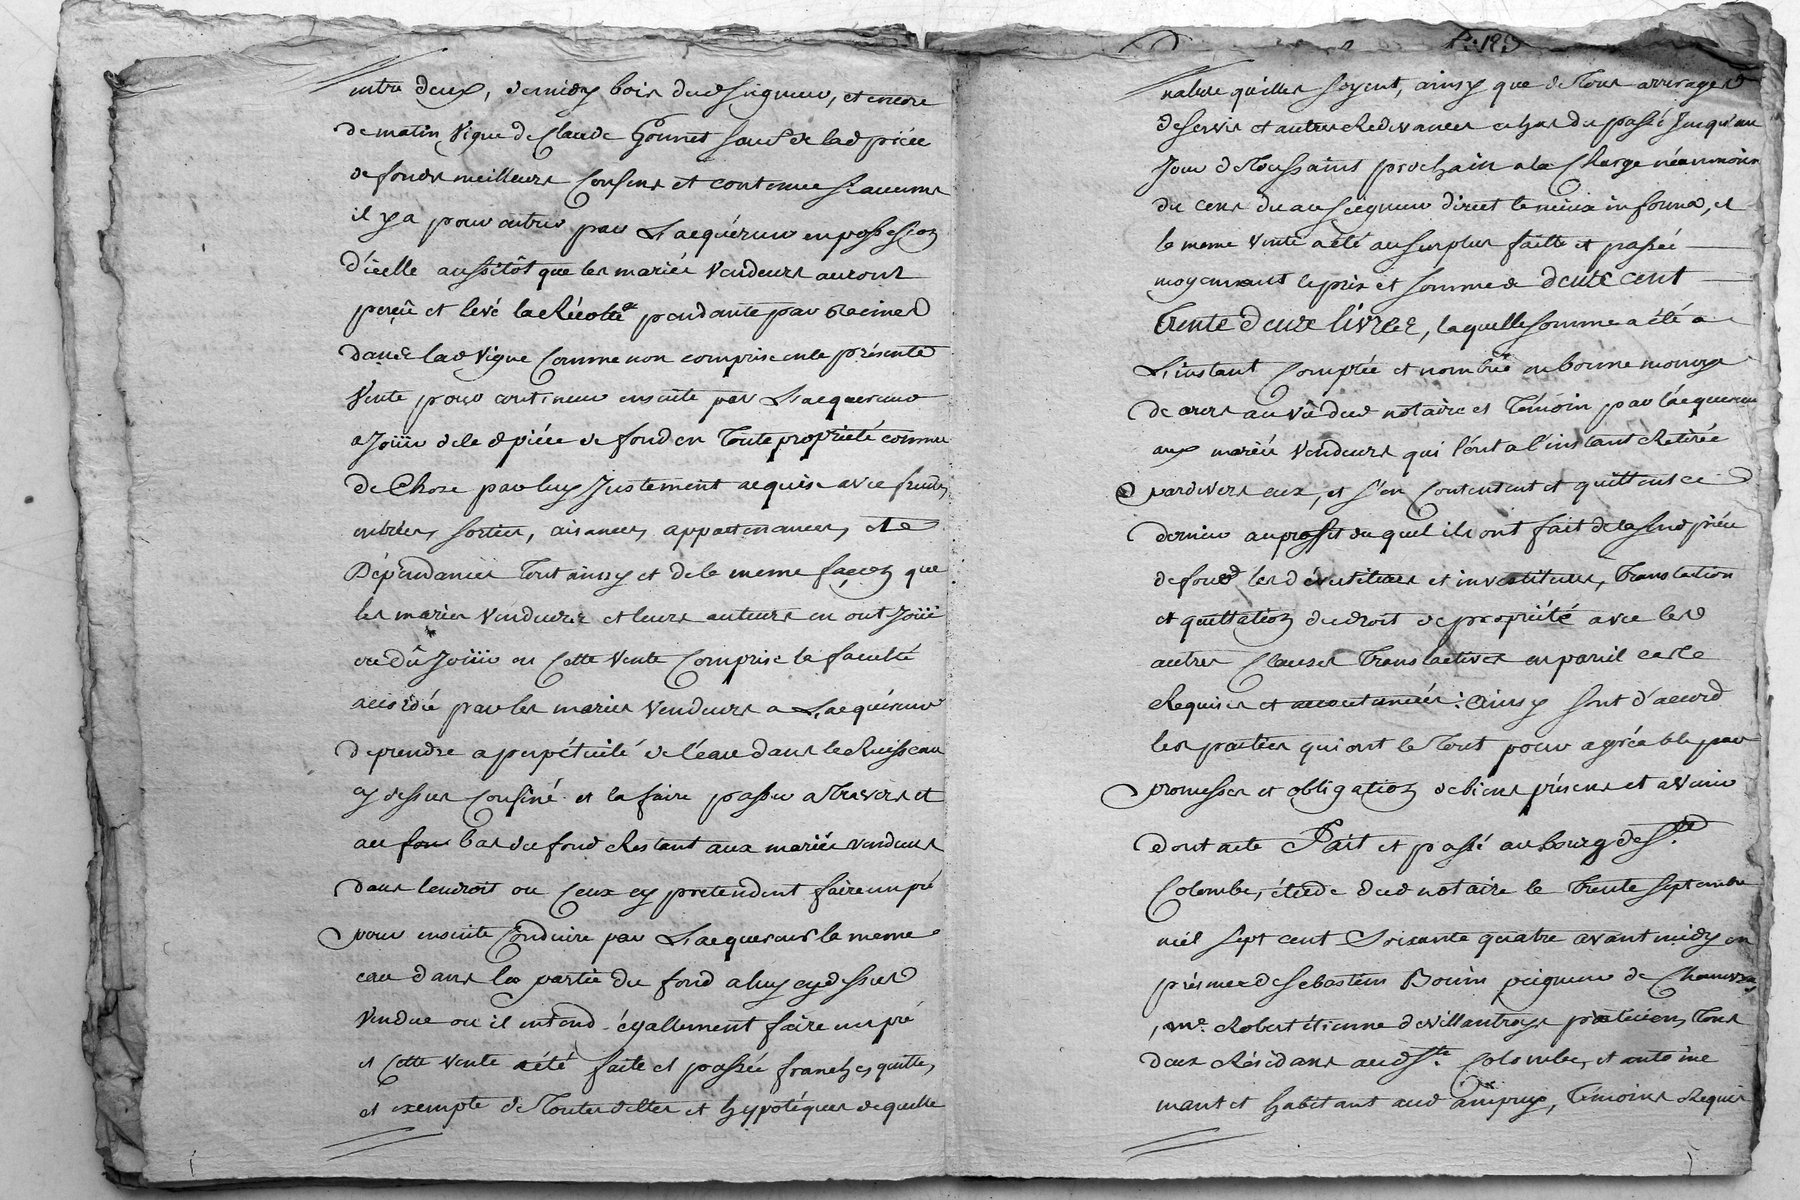 entre deux, de midy bois dud seigneur, et encore
de matin vigne de Claude Gonnet sauf de lad piéce
de fonds meilleurs Confins et contenue si aucuns
il y a pour entrer par L'acquéreur en possession
d'icelle aussitôt que les mariés vendeurs auront
perçû et levé la Récolte pendante par Racines
dans lad vigne Comme non comprise en la présente
Vente pour continuer ensuite par L'acquereur
a Joüir de la d piéce de fond en Toute propriété comme
de Chose par luy Justement acquise avec fruits,
entrées, sorties, aisances, appartenances, et
Dépendances Tout ainsy et de la meme façon que
les mariés vendeurs et leurs auteurs en ont Joüi
ou dû Joüir en Cette vente Comprise la faculté
accordée par les mariés vendeurs a L'acquéreur
de prendre a perpétuité de l'eau dans le Ruisseau
cy dessus Confiné et la faire passer a Travers et
au bas du fond Restant aux mariés vendeurs
dans lendroit ou Ceux cy pretendent faire un pré
pour ensuite Conduire par L'acquereur la meme
eau dans la partie du fond a luy cy dessus
Vendue ou il entend également faire un pré
et Cette vente a été faite et passée franche, quitte,
et exempte de Toutes dettes et hypotéques de quelle
P. 189
nature qu'elles soyent, ainsy que de Tous arrerages
de servis et autres Redevances echus du passé Jusqu'au
Jour de Toussaints prochain a la Charge néanmoins
du cens du au seigneur direct le mieux informé, et
la meme vente a été au surplus faitte et passée
moyennant le prix et somme de deux cent
Trente deux livres, laquelle somme a été a
L'instant Comptée et nombrée en bonne monoye
de cours au vû dud notaire et Témoins par l'acquereur
aux mariés vendeurs qui l'ont a l'instant Retirée
pardevers eux, et s'en Contentent et quittent ce
dernier au proffit du quel ils ont fait de la susd piéce
de fond les dévestitures et investitures, Translation
et quittation du droit de propriété avec les
autres Clauses Translatives en pareil cas
Requises et accoutumées: Ainsy sont d'accord
les parties qui ont le Tout pour agréable par
promesses et obligation de biens présens et avenir
dont acte Fait et passé au bourg de Ste
Colombe, étude dud notaire le Trente septembre
mil sept cent Soixante quatre avant midy en
présence de sebastien Bonin peigneur de Chanvre,
, me. Robert étienne devillantroys praticien, Tous
deux Résidans aud Ste. Colombe, et antoine
manet habitant aud ampuy, Témoins Requis